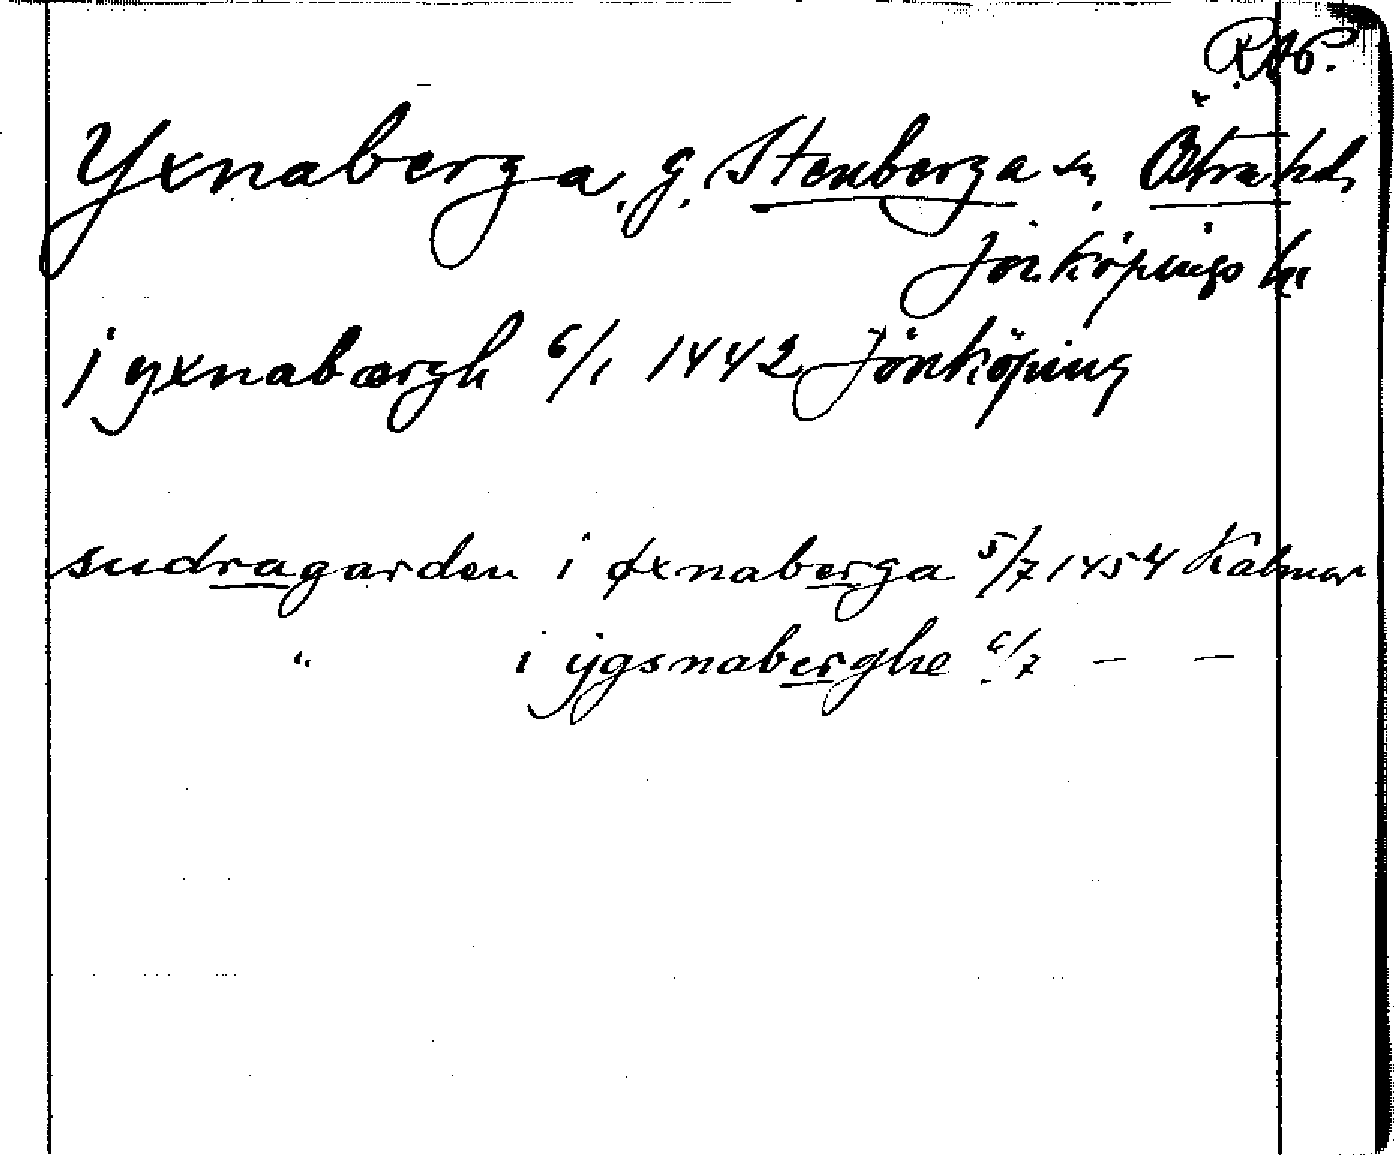 RAP.
Yxnaberga, g. Stenberga sn, Östra hd,
Jönköpings län
j yxnabærgh 6/1 1442 Jönköping
sudragarden i øxnaberga 5/7 1454 Kalmar
" i ÿgsnaberghe 6/7 — —